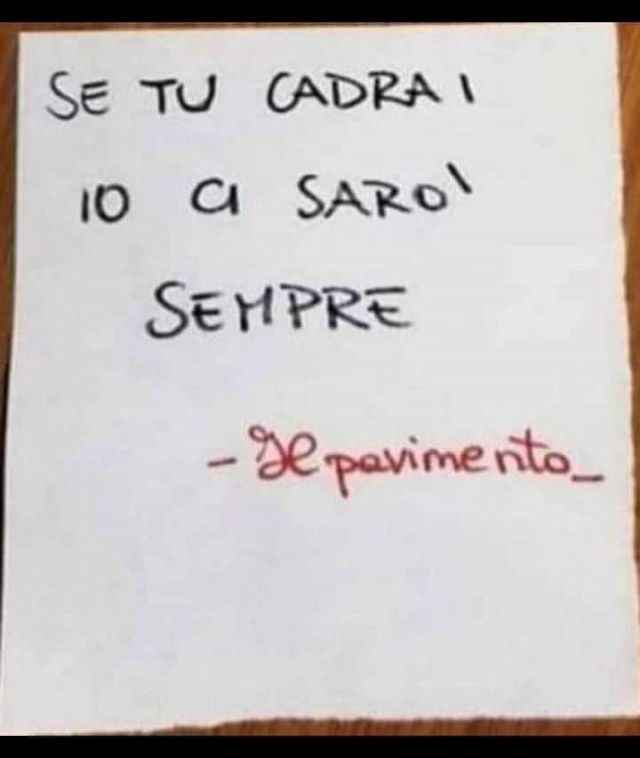 SE TU CADRAI
IO CI SARO'
SEMPRE
- Il pavimento_